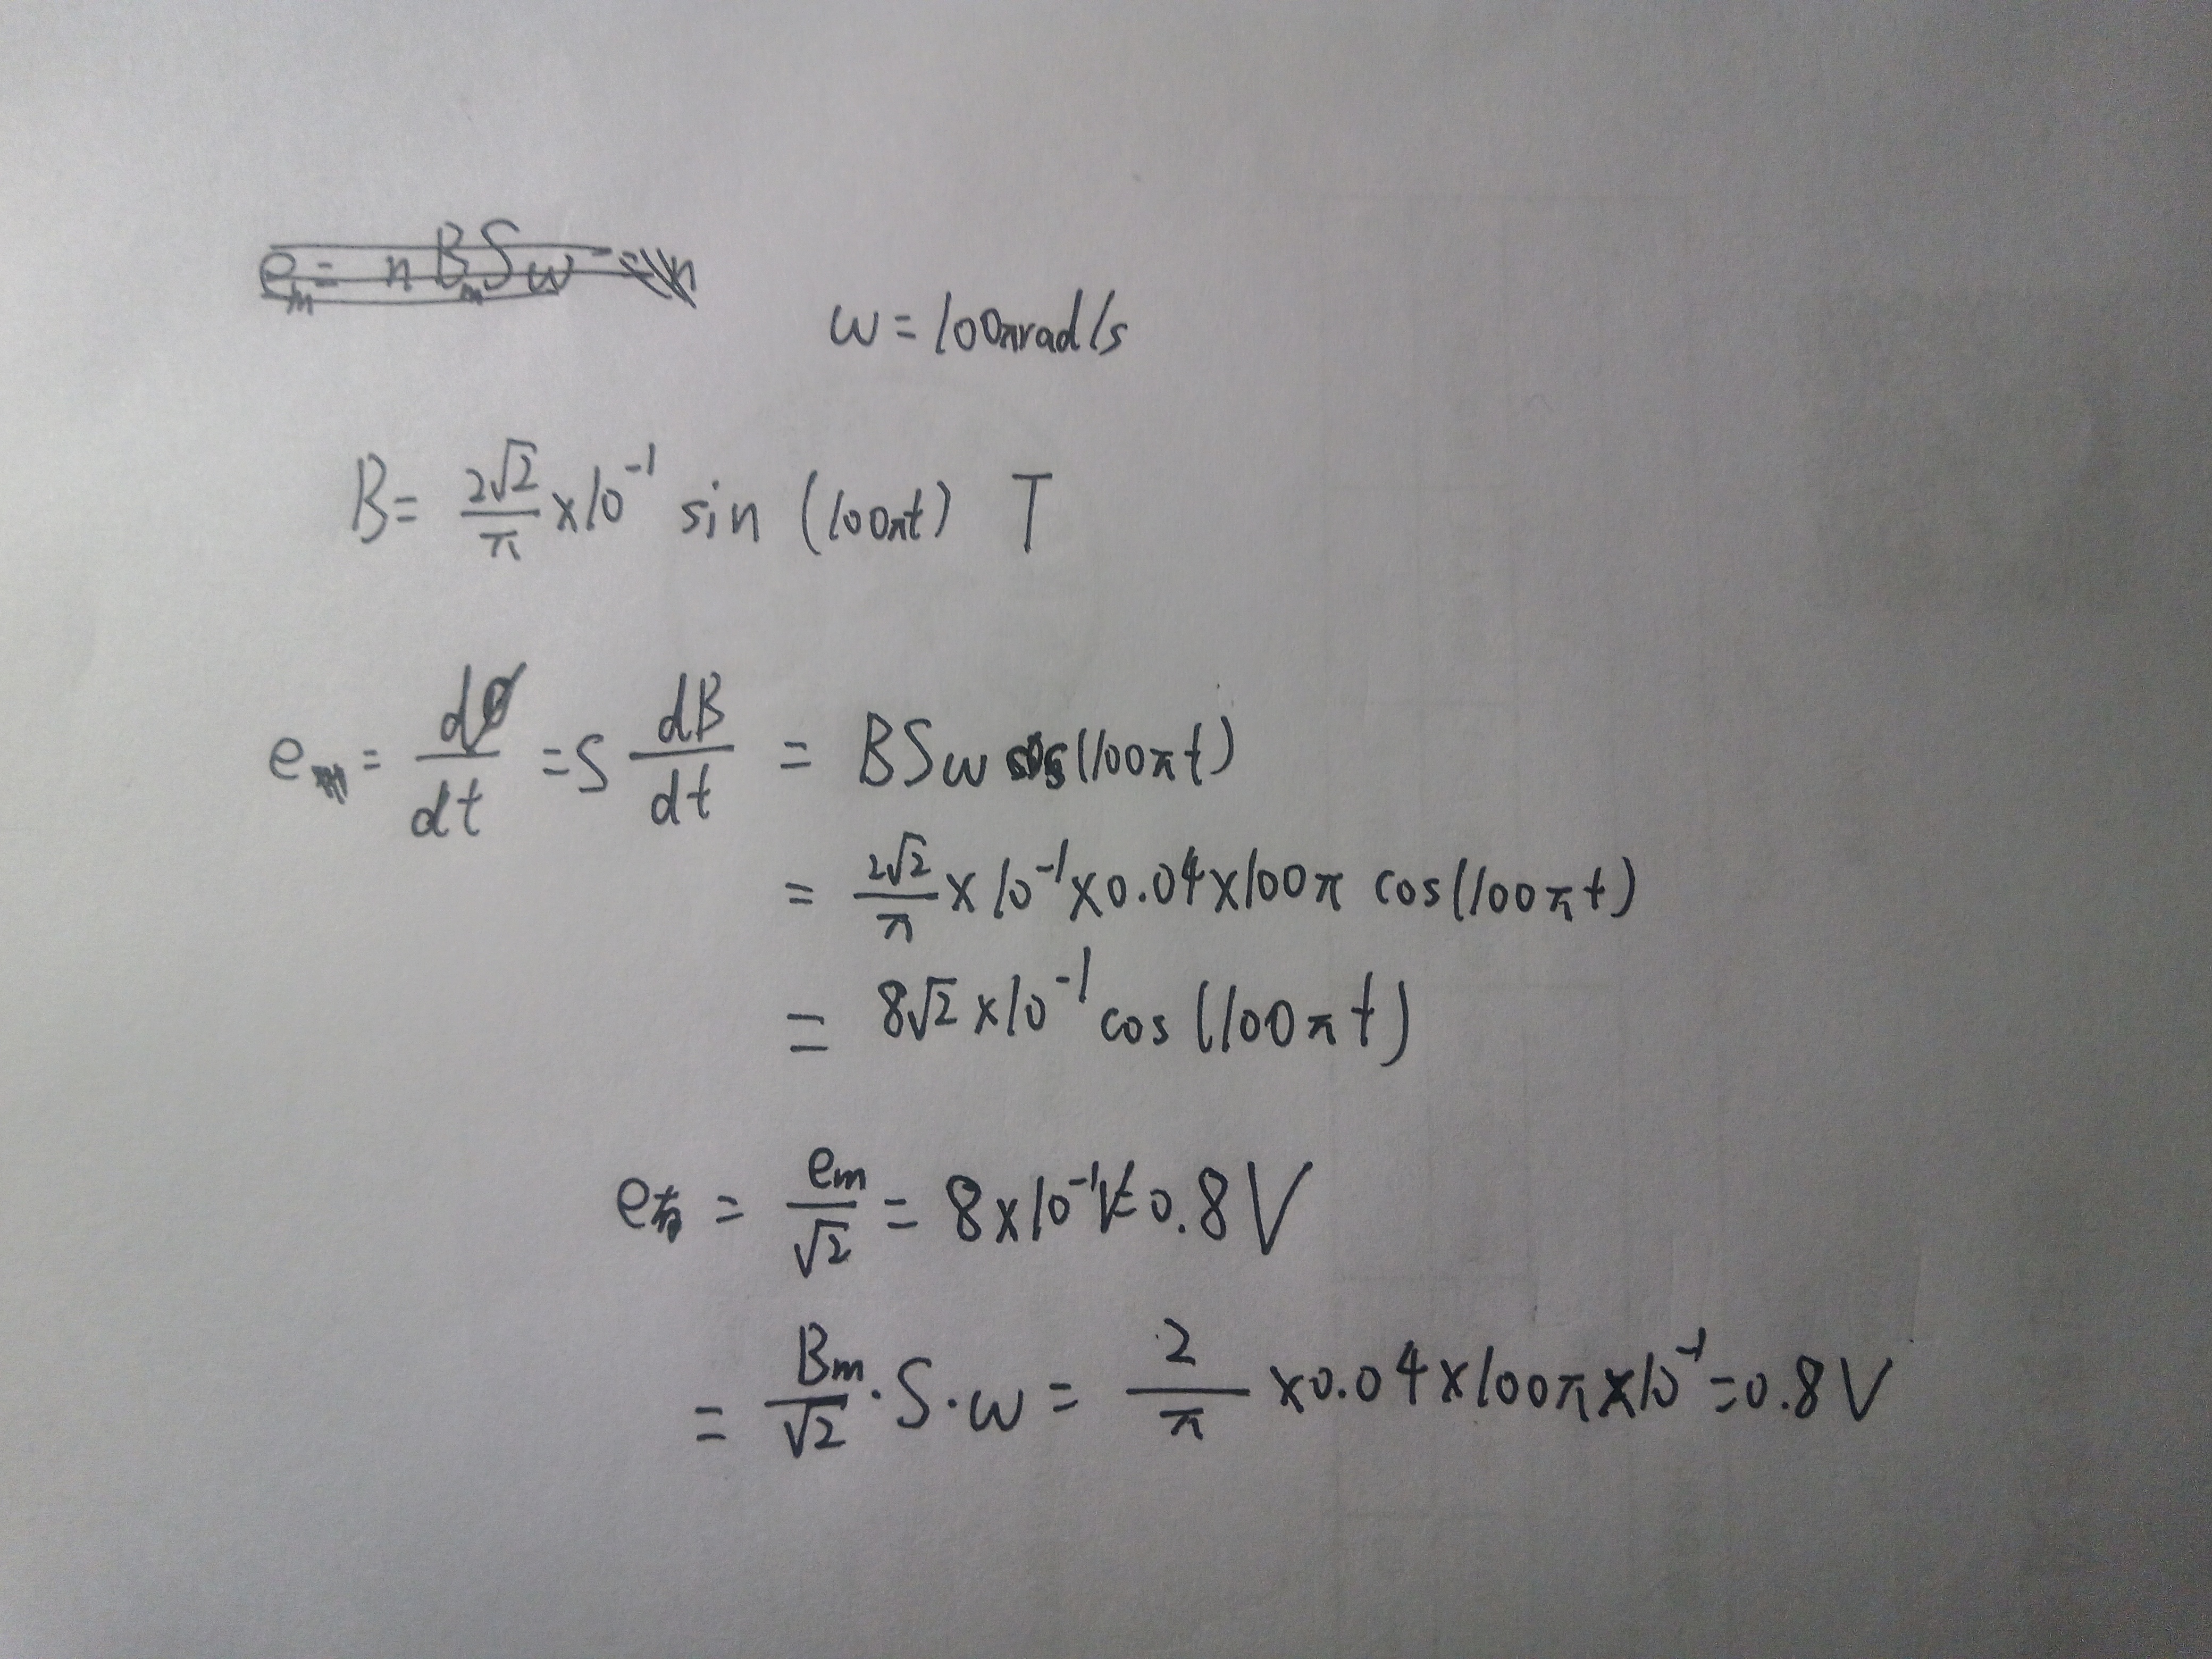 e_m = n B_m S ω =
ω = 100π rad/s
B = \frac{2\sqrt{2}}{π} × 10^{-1} sin (100πt) T
e = \frac{dΦ}{dt} = S \frac{dB}{dt} = B S ω cos(100πt)
= \frac{2\sqrt{2}}{π} × 10^{-1} × 0.04 × 100π cos(100πt)
= 8\sqrt{2} × 10^{-1} cos (100πt)
e_有 = \frac{e_m}{\sqrt{2}} = 8 × 10^{-1} = 0.8 V
= \frac{B_m}{\sqrt{2}} · S · ω = \frac{2}{π} × 0.04 × 100π × 10^{-1} = 0.8 V